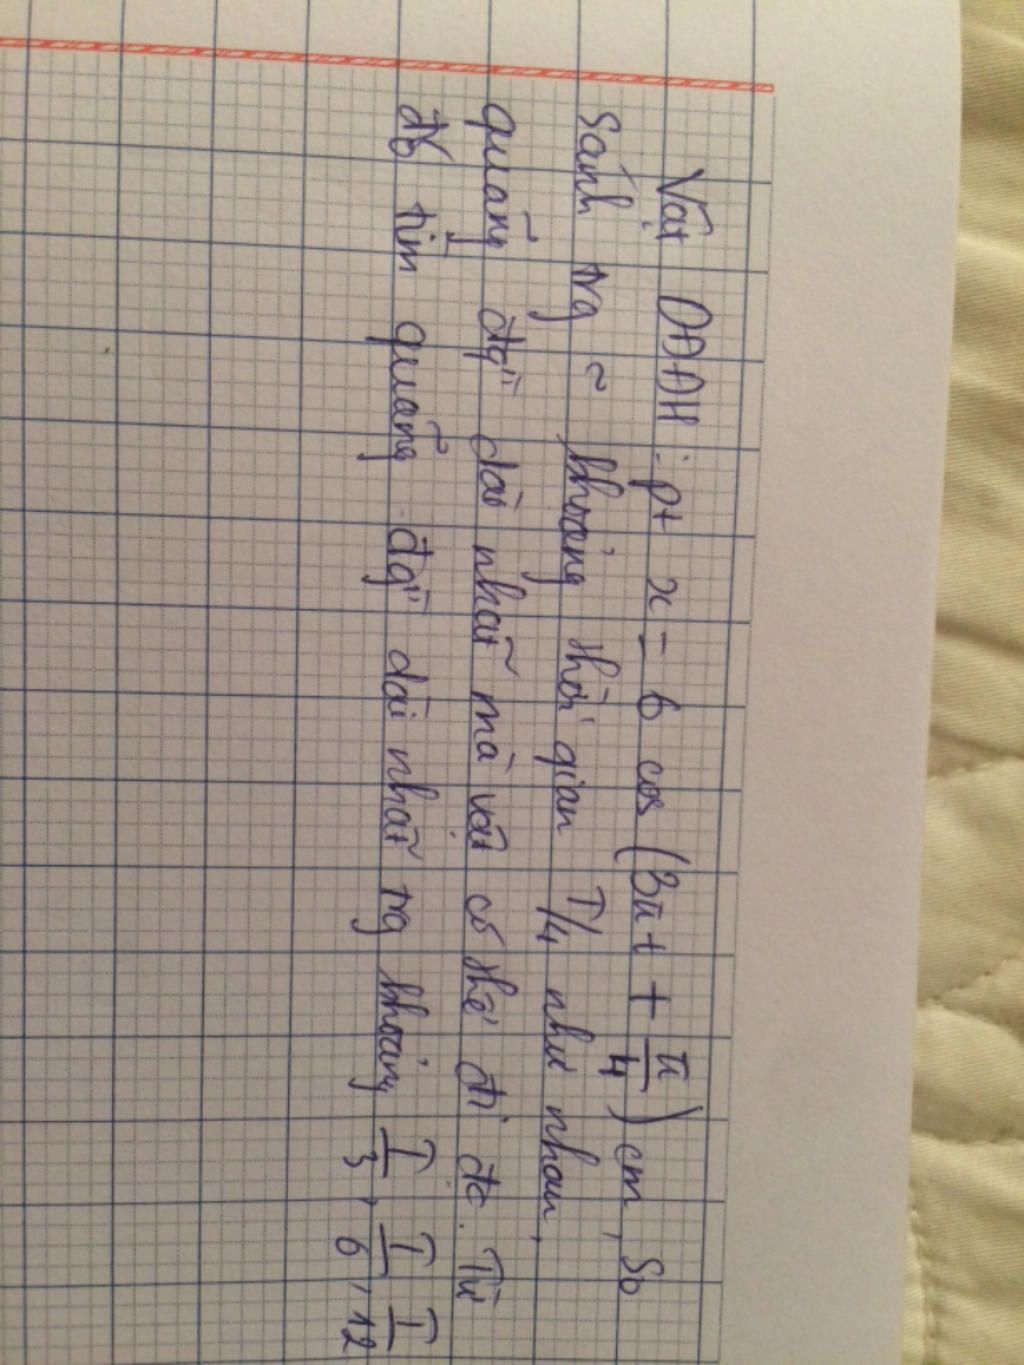 Vật DĐĐH : pt x = 6 cos (3π t + π/4) cm, So
sánh trg ~ khoảng thời gian T/4 như nhau,
quãng đg dài nhất mà vật có thể đi đc. Từ
đó tìm quãng đg dài nhất trg khoảng T/3, T/6, T/12